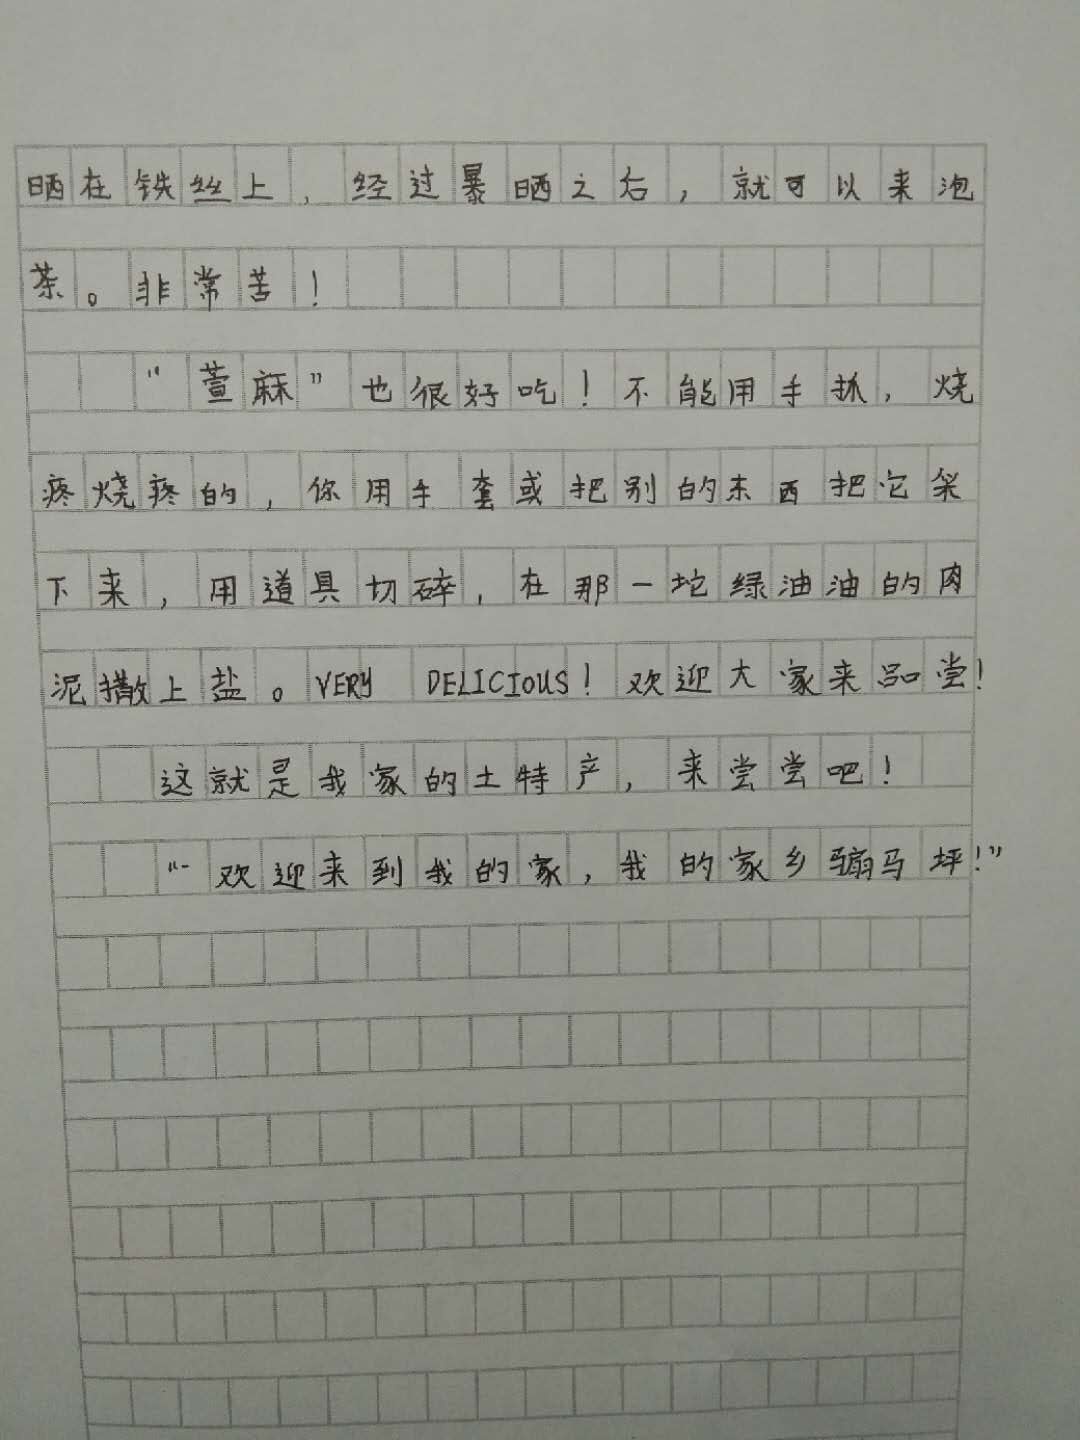 晒在铁丝上，经过暴晒之后，就可以来泡
茶。非常苦！
“萱麻”也很好吃！不能用手抓，烧
疼烧疼的，你用手套或把别的东西把它架
下来，用道具切碎，在那一坨绿油油的肉
泥撒上盐。VERY DELICIOUS！欢迎大家来品尝！
这就是我家的土特产，来尝尝吧！
“欢迎来到我的家，我的家乡骟马坪！”